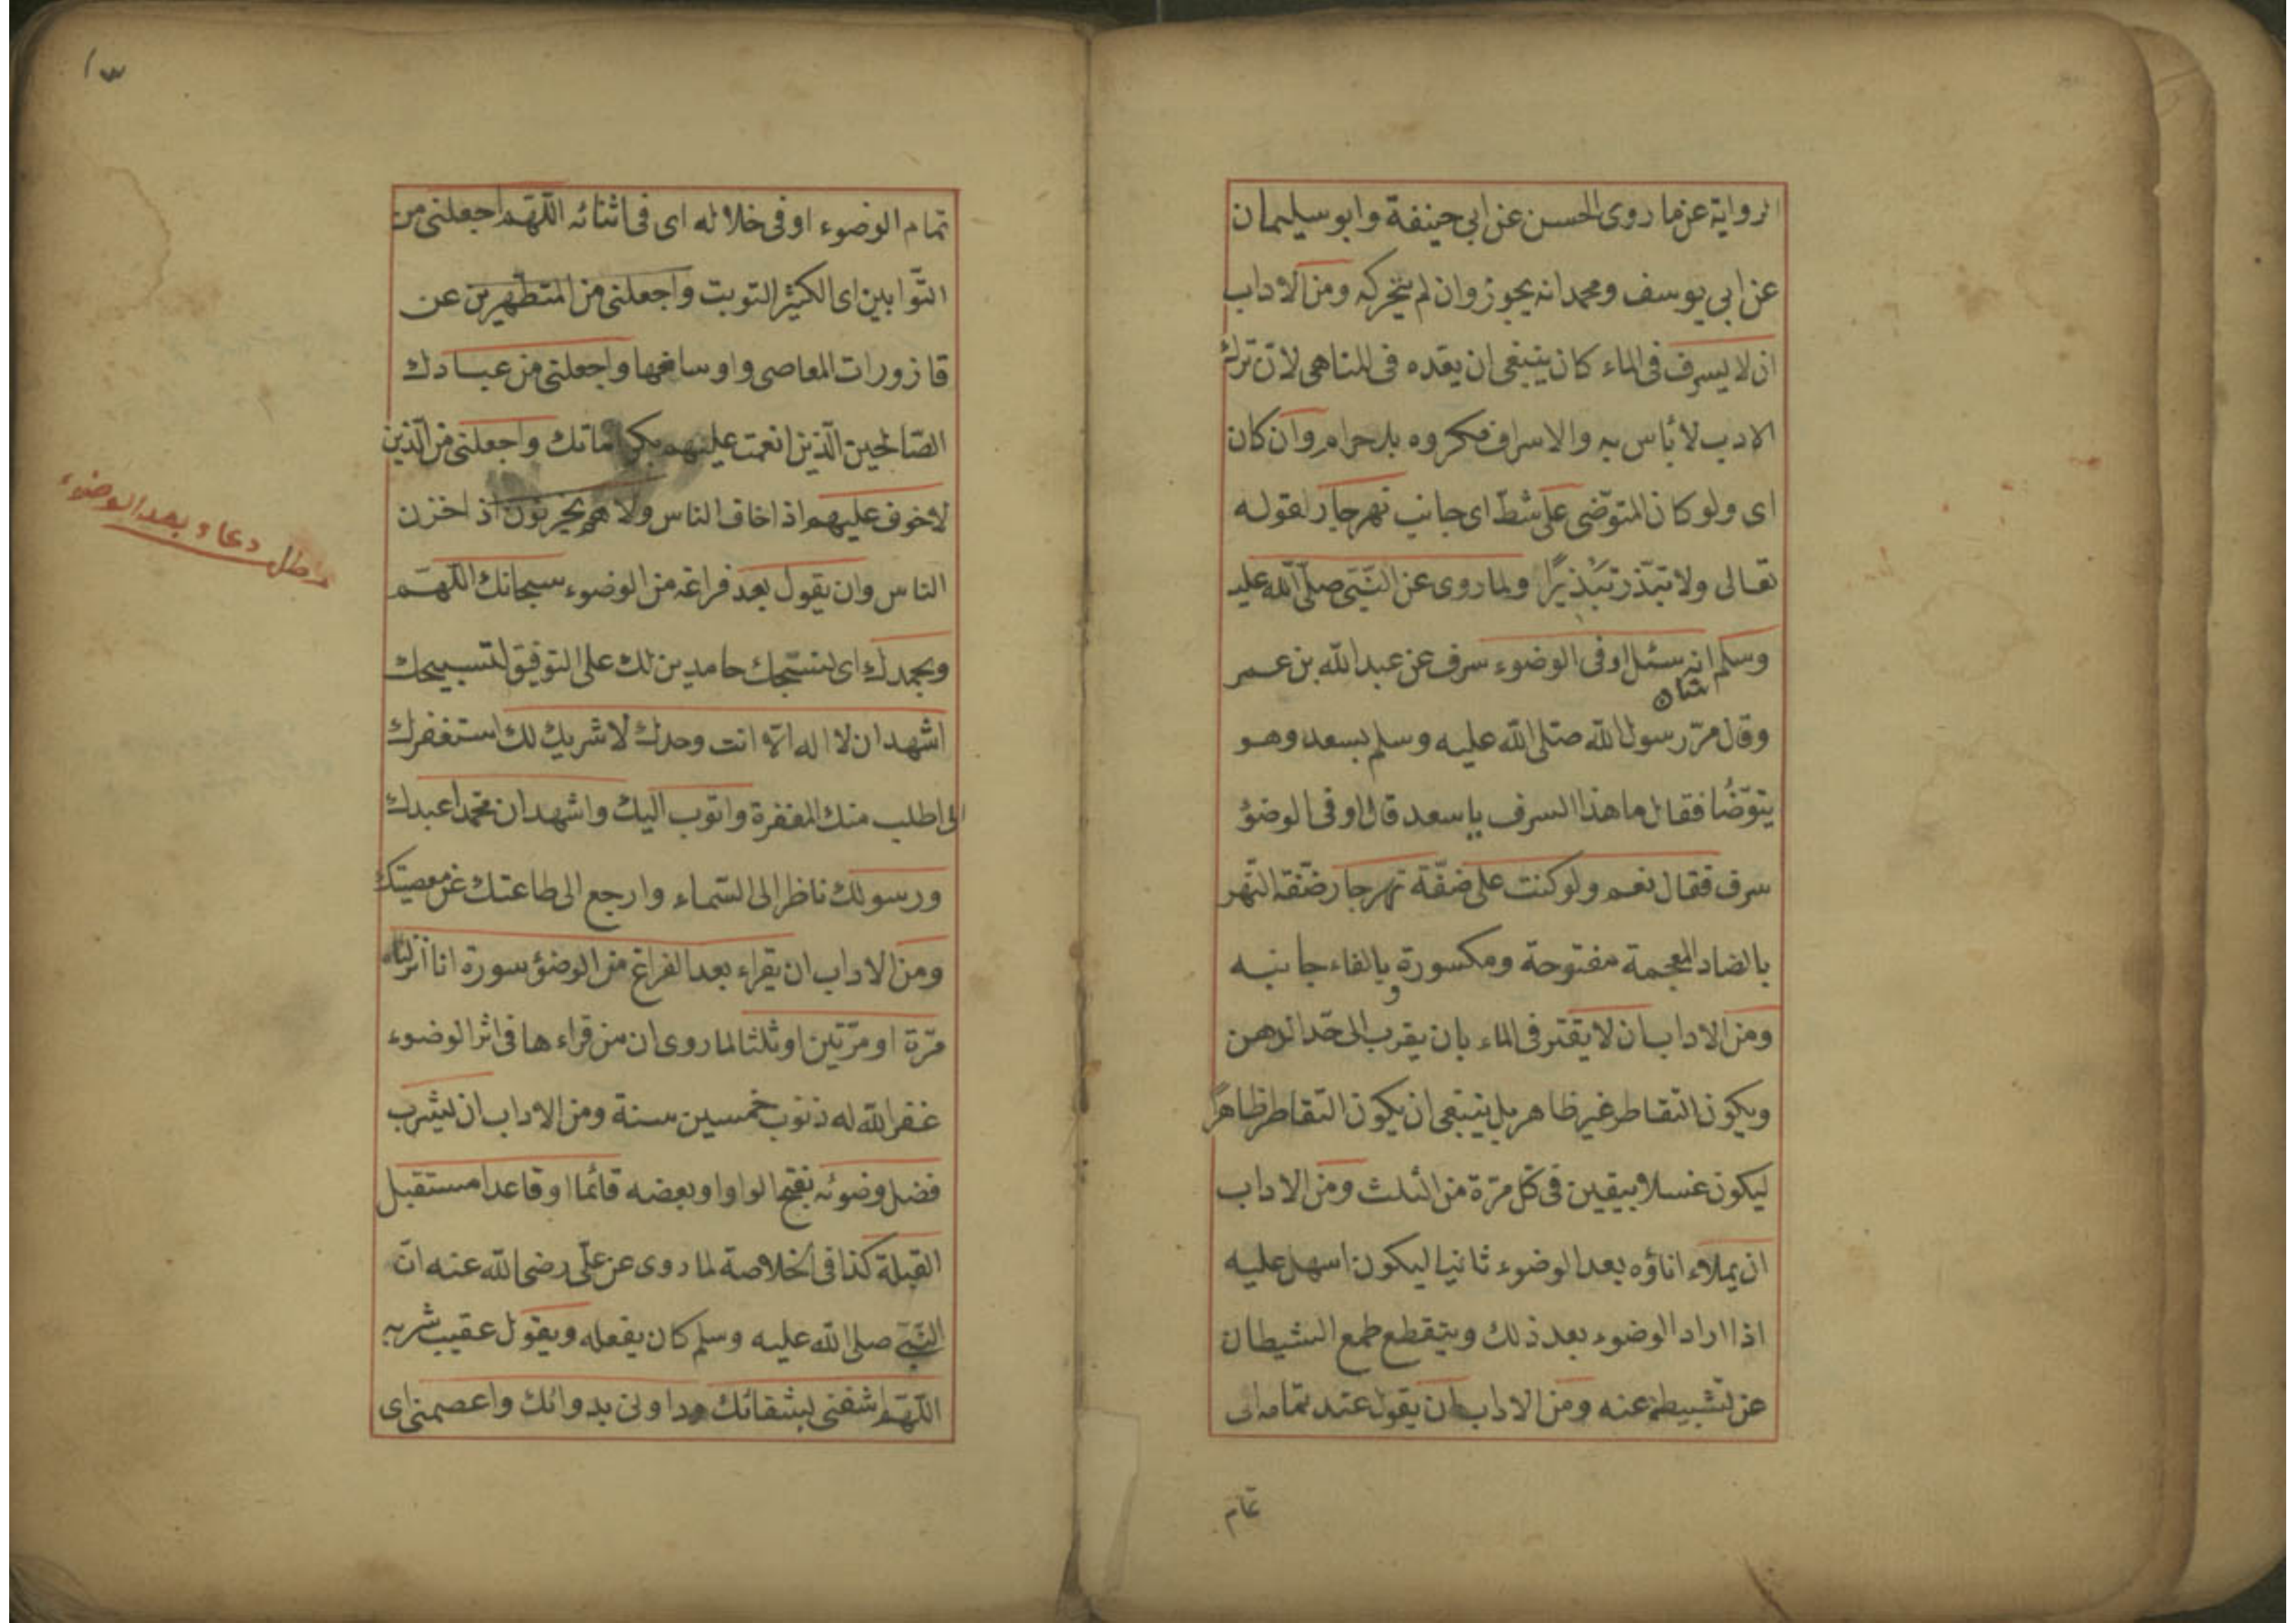 الرواية عن ما روى الحسن عن ابي حنيفة وابو سليمان
عن ابي يوسف ومحمد انه يجوز وان لم يتحركه ومن الاداب
ان لا يسرف فى الماء كان ينبغى ان يعده فى المناهى لان ترك
الادب لا بأس به والاسراف مكروه بل حرام وان كان
اى ولو كان المتوضى على شط اى جانب نهر جار لقوله
تعالى ولا تبذر تبذيرًا ولما روى عن النبى صلى الله عليه
وسلم انه سئل اوفى الوضوء سرف عن عبد الله بن عمر
وقال مرّ رسول الله صلى الله عليه وسلم بسعد وهو
يتوضأ فقال ما هذا السرف يا سعد قال اوفى الوضؤ
سرف فقال نعم ولو كنت على ضفّة نهر جار ضفة النهر
بالضاد المعجمة مفتوحة ومكسورة وبالفاء جانبه
ومن الاداب ان لا يقتر فى الماء بان يقرب الى حد الدهن
ويكون التقاطر غير ظاهر بل ينبغى ان يكون التقاطر ظاهرًا
ليكون غسلا بيقين فى كل مرّة من الثلث ومن الاداب
ان يملاء اناؤه بعد الوضوء ثانيا ليكون اسهل عليه
اذا اراد الوضوء بعد ذلك وينقطع طمع الشيطان
عن تثبيطه عنه ومن الاداب ان يقول عند تمامه اى
تمام
١٣
تمام الوضوء اوفى خلاله اى فى اثنائه اللّهم اجعلنى من
التّوابين اى الكثير التوبت واجعلنى من المتطهرين عن
قازورات المعاصى واوساخها واجعلنى من عبادك
الصّالحين الّذين انعمت عليهم بكراماتك واجعلنى من الّذين
لا خوف عليهم اذا خاف الناس ولا هم يحزنون اذ احزن
الناس وان يقول بعد فراغه من الوضوء سبحانك اللّهمّ
وبحمدك اى نسبّحك حامدين لك على التوفيق لتسبيحك
اشهد ان لا اله الّا انت وحدك لا شريك لك استغفرك
اى اطلب منك المغفرة واتوب اليك واشهد ان محمّدا عبدك
ورسولك ناظرا الى السّماء وارجع الى طاعتك عن معصيتك
ومن الاداب ان يقراء بعد الفراغ من الوضؤ سورة انا انزلناه
مرّة او مرّتين او ثلثا لما روى ان من قراءها فى اثر الوضوء
غفر الله له ذنوب خمسين سنة ومن الاداب ان يشرب
فضل وضوئه بفتح الواو او بعضه قائما او قاعدا مستقبل
القبلة كذا فى الخلاصة لما روى عن علّى رضى الله عنه انّ
النبّى صلى الله عليه وسلم كان يفعله ويقول عقيب شربه
اللّهمّ اشفنى بشفائك وداونى بدوائك واعصمنى اى
مطلب دعاء بعد الوضوء